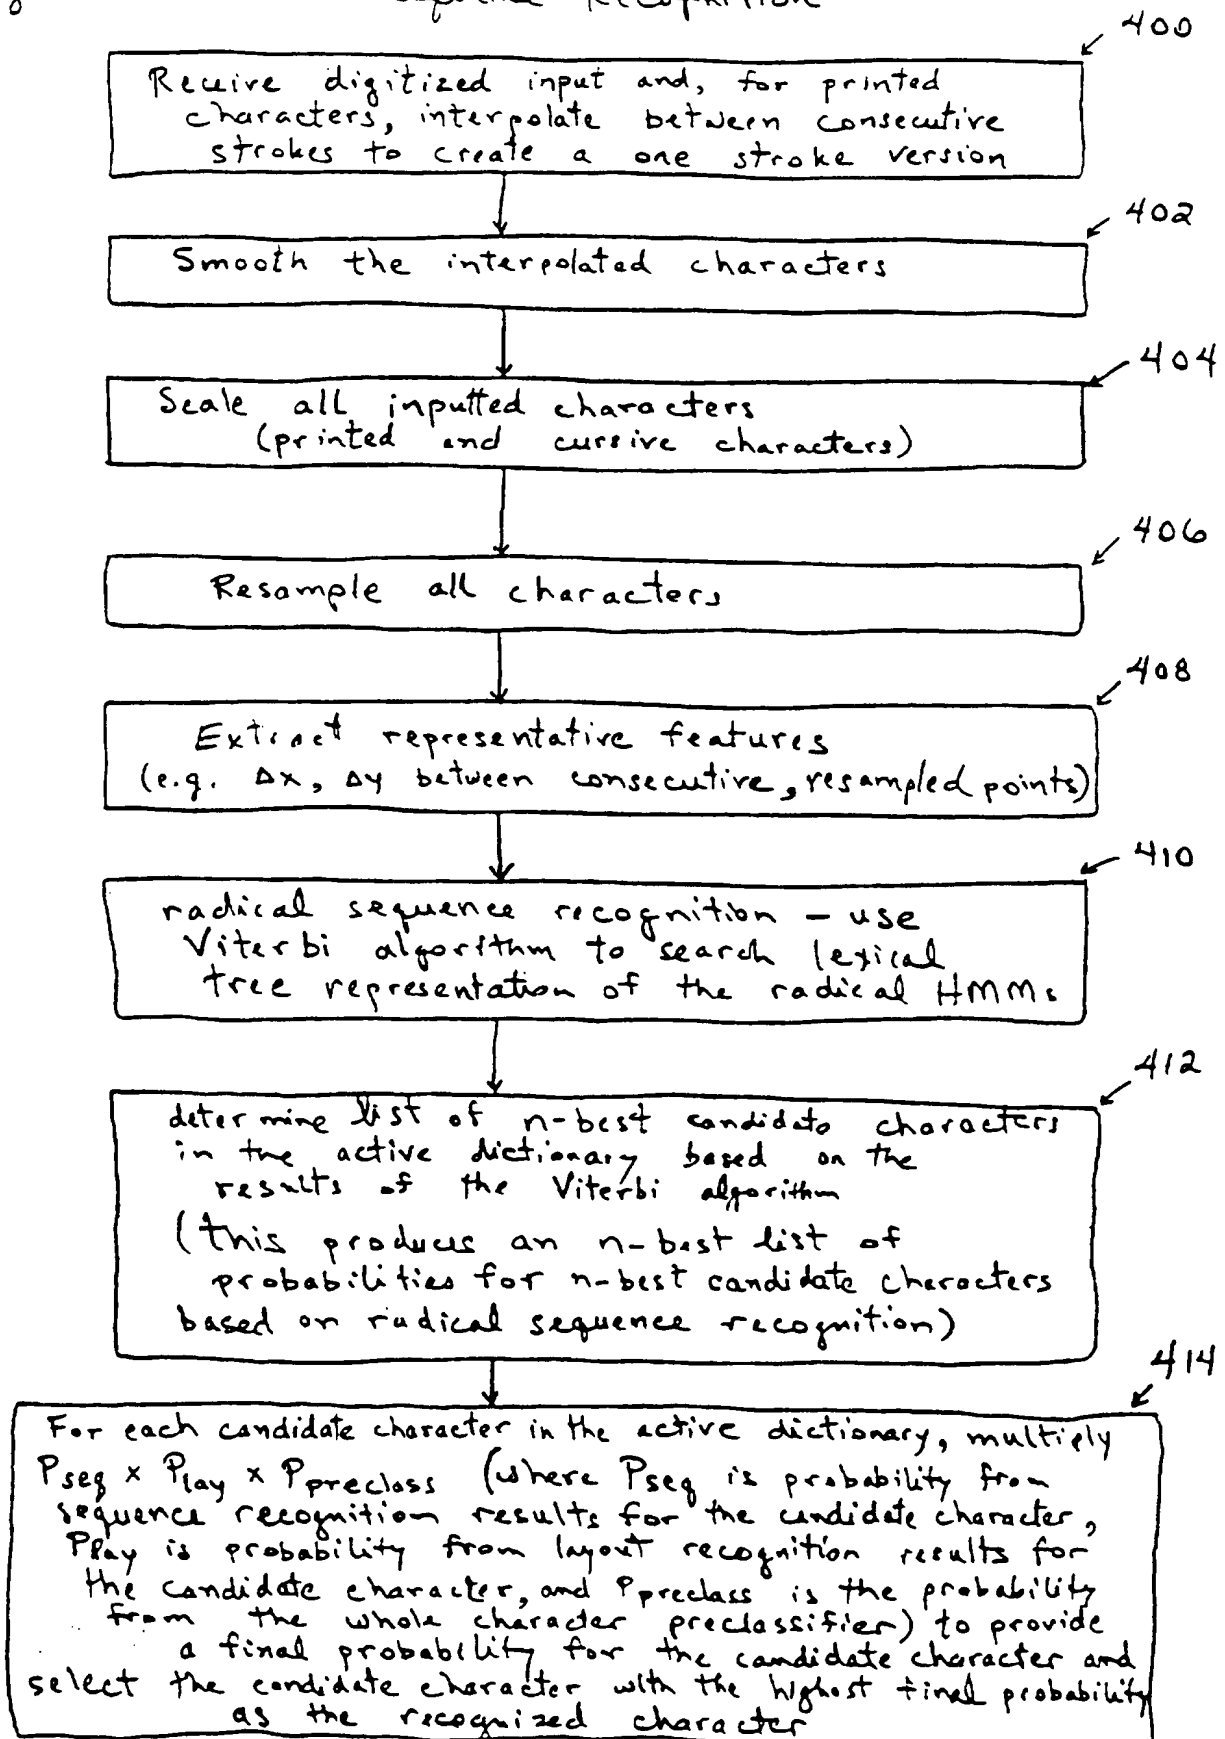 Sequence Recognition
400
Receive digitized input and, for printed
characters, interpolate between consecutive
strokes to create a one stroke version
402
Smooth the interpolated characters
404
Scale all inputted characters
(printed and cursive characters)
406
Resample all characters
408
Extract representative features
(e.g. Δx, Δy between consecutive, resampled points)
410
radical sequence recognition - use
Viterbi algorithm to search lexical
tree representation of the radical HMMs
412
determine list of n-best candidate characters
in the active dictionary based on the
results of the Viterbi algorithm
(this produces an n-best list of
probabilities for n-best candidate characters
based on radical sequence recognition)
414
For each candidate character in the active dictionary, multiply
Pseq x Play x Ppreclass (where Pseq is probability from
sequence recognition results for the candidate character,
Play is probability from layout recognition results for
the candidate character, and Ppreclass is the probability
from the whole character preclassifier) to provide
a final probability for the candidate character and
select the candidate character with the highest final probability
as the recognized character